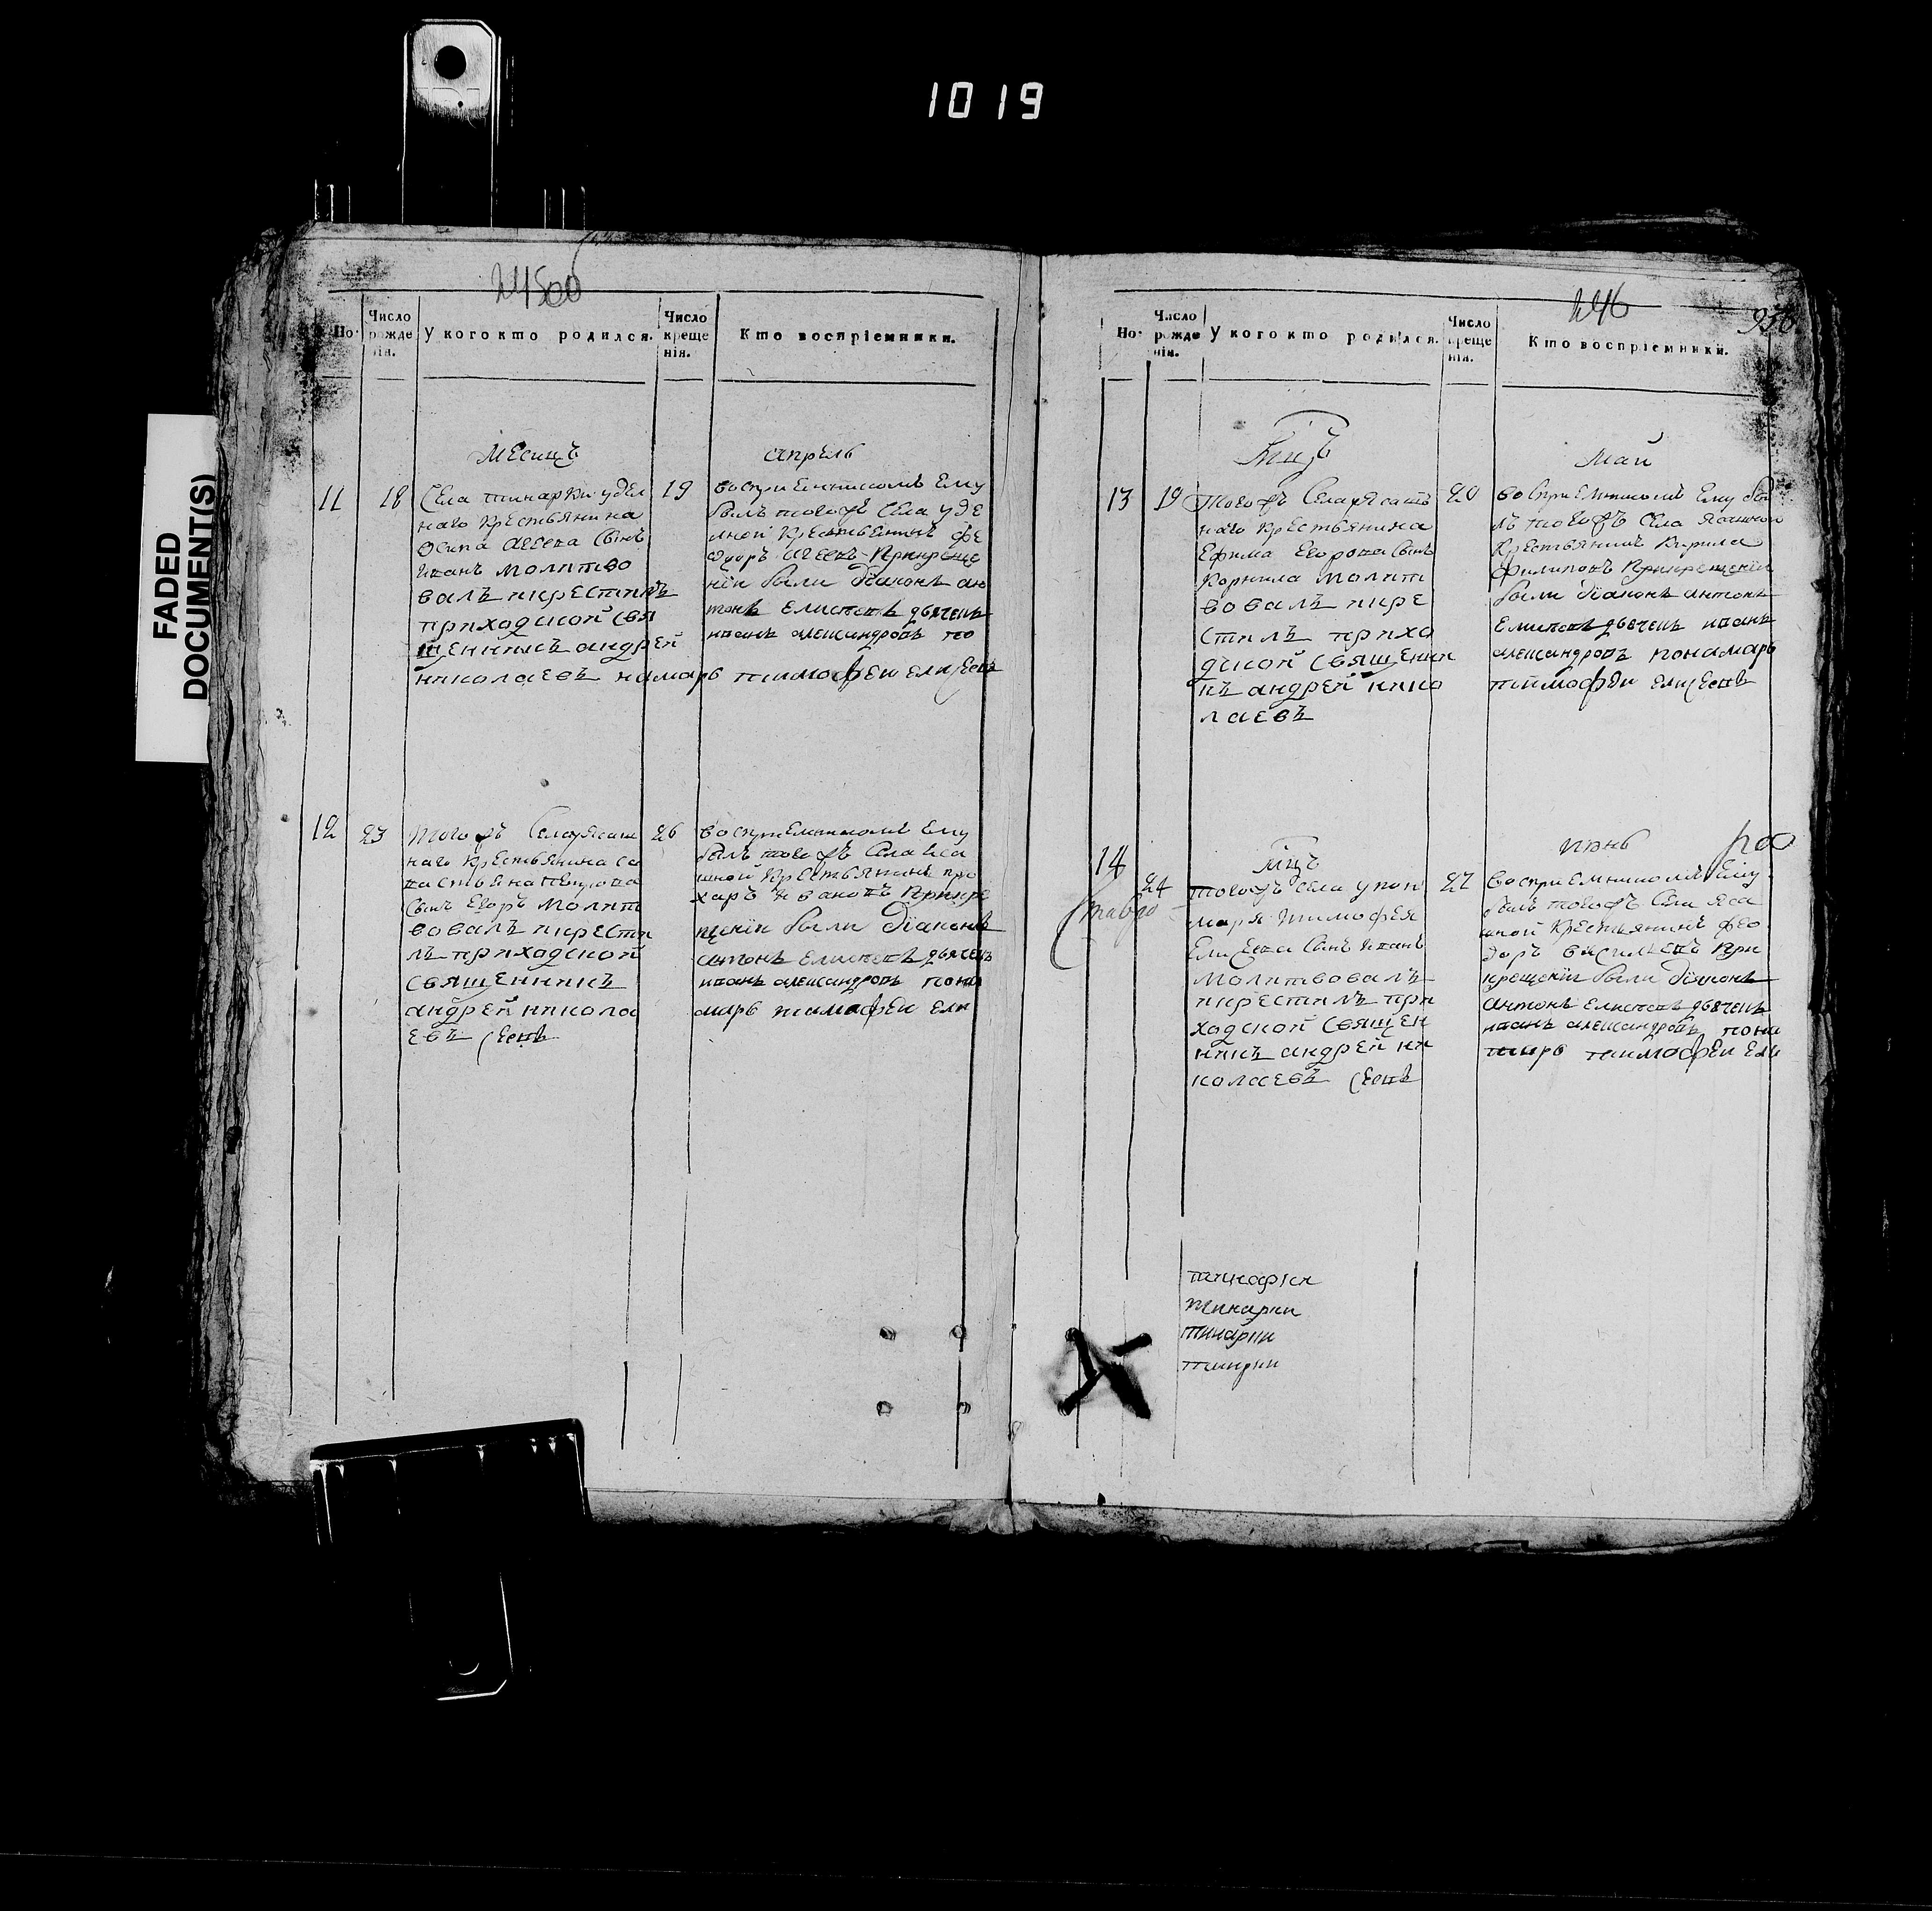 1019
FADED
DOCUMENT(S)
24500
Но.
Число рожде нія.
У кого кто родился.
Число креще нія.
Кто воспріемники.
месицъ
апрель
11
18
Села тинарки удел
наго крестьянина
Осипа Агеева сынъ
иванъ молитво
валъ икрестилъ
приходской свя
щенникъ андрей
николаевъ
19
восприемникомъ ему
былъ тогожъ села уде
лной крестьянинъ фе
одоръ Агеевъ прикреще
нïи были дïаконъ ан
тонъ елисеевъ дьячекъ
иванъ александровъ по
намарь тимофеи елисеевъ
12
23
тогожъ села ясаш
наго крестьянина са
вастьяна петрова
сынъ егоръ молит
вовалъ икрести
лъ приходской
священникъ
андрей никола
евъ
26
восприемникомъ ему
былъ тогожъ села яса
шной крестьянинъ про
харъ ивановъ прикре
щенïи были дïаконъ
антонъ елисеевъ дьячекъ
иванъ александровъ пона
марь тимофеи ели
сеевъ
246
936
Но.
Число рожде нія.
У кого кто родился.
Число креще нія.
Кто воспріемники.
мцъ
май
13
19
тогожъ села ясаш
наго крестьянина
Ефима Егорова сынъ
Корнила молит
вовалъ икре
стилъ прихо
дской священи
къ андрей нико
лаевъ
20
восприемникомъ ему бы
лъ тогожъ села ясашной
крестьянинъ кирила
филиповъ прикрещенïи
были дïаконъ антонъ
елисеевъ дьячекъ иванъ
александровъ понамарь
тимофеи елисеевъ
мцъ
июнь
14
24
тогожъ села у пон
маря тимофея
Елисеева сынъ иванъ
молитвовалъ
икрестилъ при
ходской священ
никъ андрей ни
колаевъ
27
восприемникомъ ему
былъ тогожъ села яса
шной крестьянинъ фео
доръ васильевъ при
крещенïи были дïаконъ
антонъ елисеевъ дьячекъ
иванъ александровъ пона
марь тимофеи ели
сеевъ
тинарки
тинарки